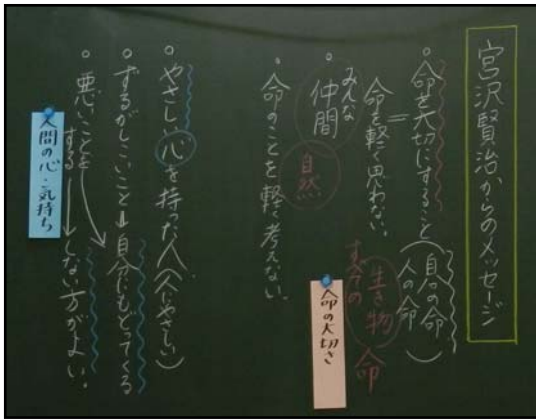 宮沢賢治からのメッセージ
○命を大切にすること(自分の命
人の命)
命を軽く思わない。
すべての生き物 命
○みんな仲間
自然
・命のことを軽く考えない。
命の大切さ
○やさしい心を持った人(人にやさしい)
○ずるがしこいこと→自分にもどってくる
○悪いことをする→しない方がよい。
人間の心・気持ち